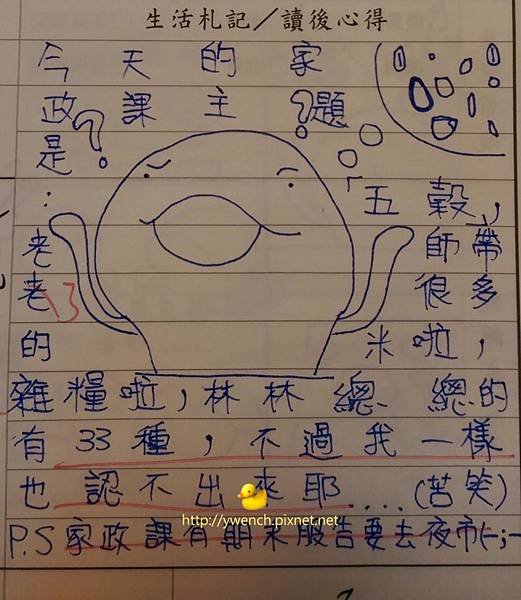 生活札記／讀後心得
今天的家
政課主題
是：「五穀」，
老師帶
老很多
的米啦，
雜糧啦，林林總總的
有33種，不過我一樣
也認不出來耶....(苦笑)
http://ywench.pixnet.net
P.S家政課有期末報告要去夜市(-;-